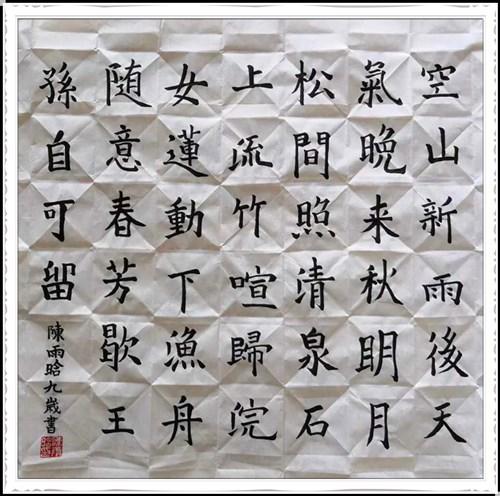 空山新雨後天
氣晚来秋明月
松間照清泉石
上流竹喧歸浣
女蓮動下漁舟
随意春芳歇王
孫自可留
陳雨晗九歲書